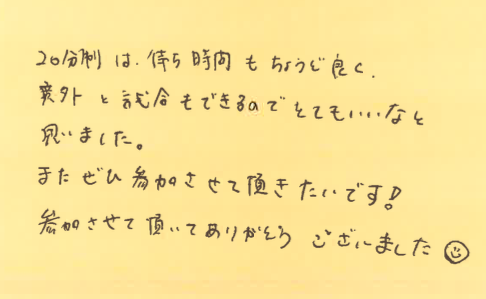 20分制は、待ち時間もちょうど良く、
意外と試合もできるのでとてもいいなと
思いました。
またぜひ参加させて頂きたいです!
参加させて頂いてありがとうございました☺